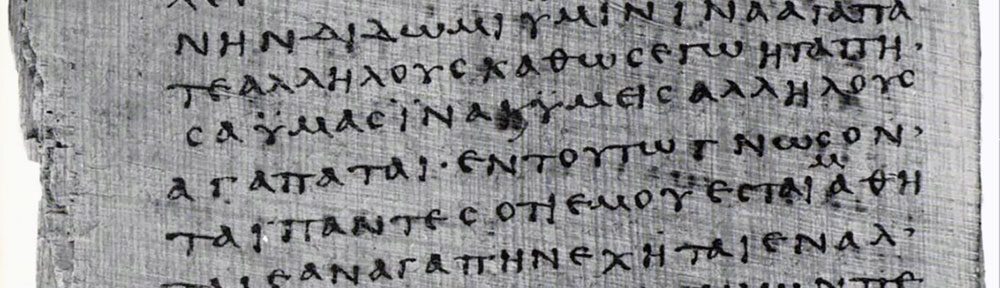 ΝΗΝΔΙΔΩΜΙΥΜΙΝΙΝΑΑΓΑΠΑ
ΤΕΑΛΛΗΛΟΥϹΚΑΘΩϹΕΓΩΗΓΑΠΗ·
ϹΑΫΜΑϹΪΝΑΫΜΕΙϹΑΛΛΗΛΟΥϹ
ΑΓΑΠΑΤΑΙ·ΕΝΤΟΥΤΩΓΝΩϹΟΝ’
ΤΑΙΠΑΝΤΕϹΟΤΙΕΜΟΥΕϹΤΑΙΜΑΘΗ
ΤΑΙΕΑΝΑΓΑΠΗΝΕΧΗΤΑΙΕΝΑΛ’